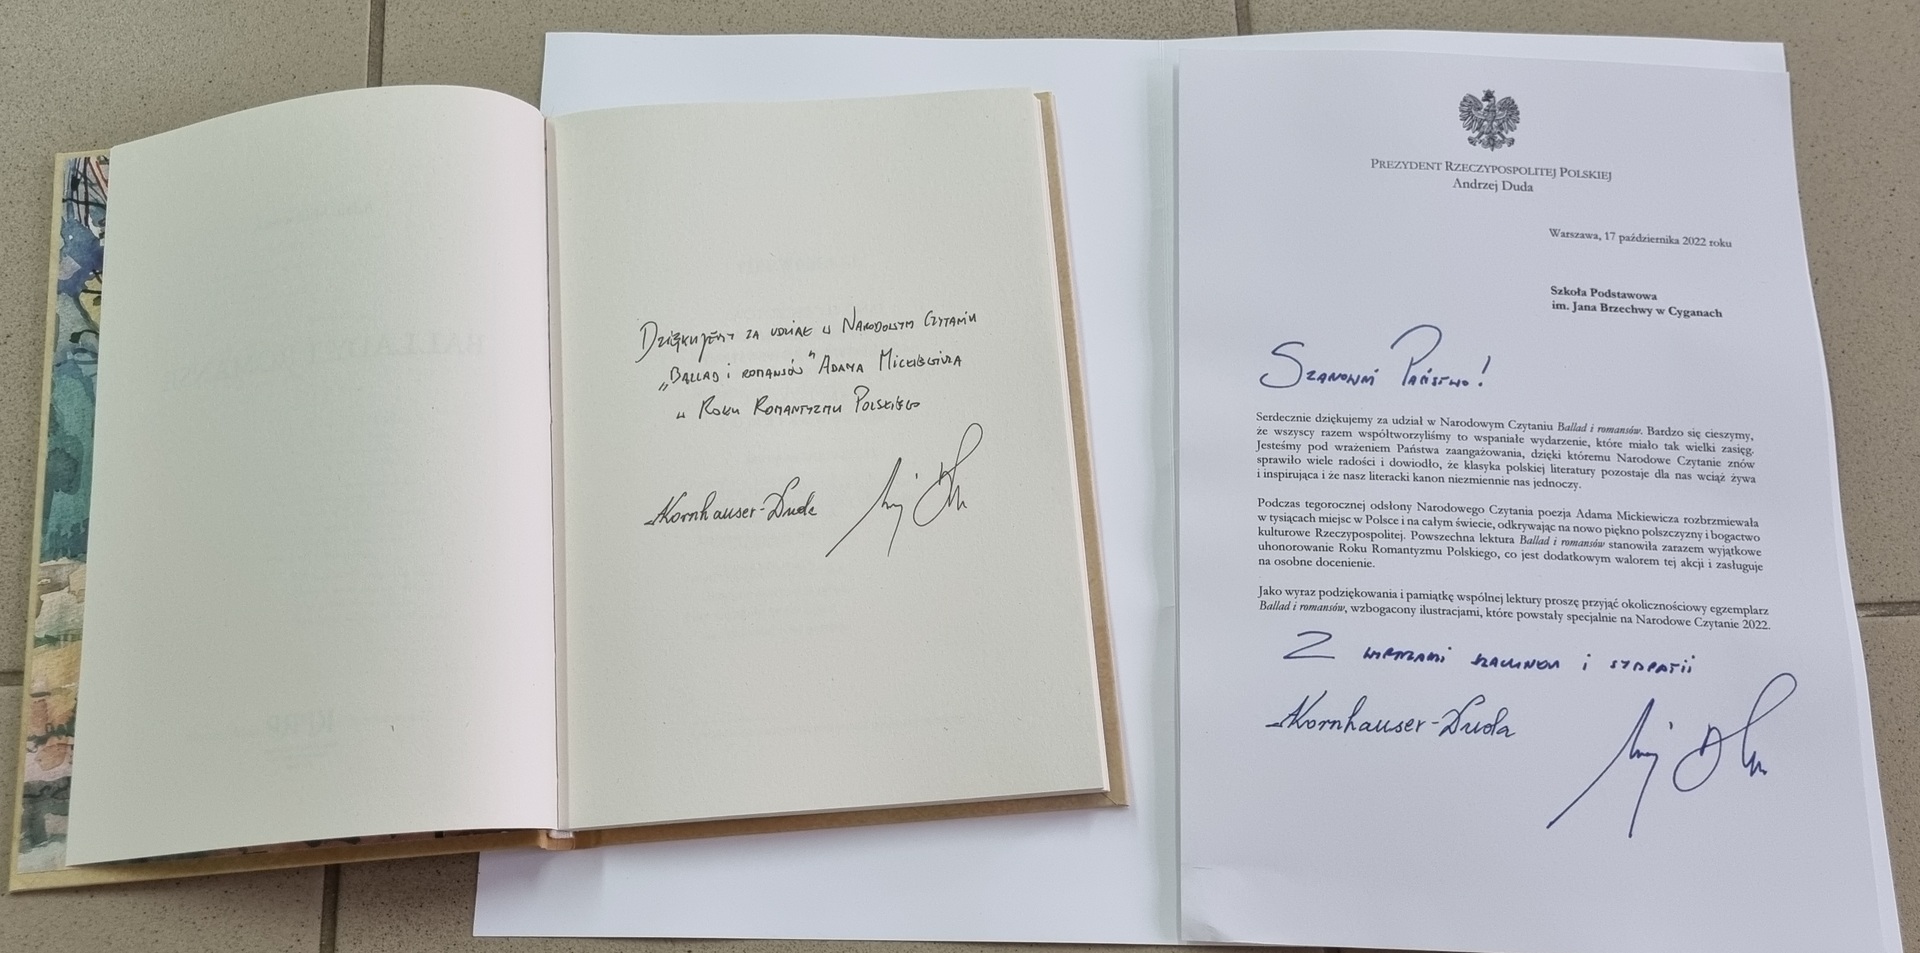 Dziękujemy za udział w Narodowym Czytaniu
„Ballad i romansów” Adama Mickiewicza
w Roku Romantyzmu Polskiego
AKornhauser-Duda
PREZYDENT RZECZYPOSPOLITEJ POLSKIEJ
Andrzej Duda
Warszawa, 17 października 2022 roku
Szkoła Podstawowa
im. Jana Brzechwy w Cyganach
Szanowni Państwo!
Serdecznie dziękujemy za udział w Narodowym Czytaniu Ballad i romansów. Bardzo się cieszymy,
że wszyscy razem współtworzyliśmy to wspaniałe wydarzenie, które miało tak wielki zasięg.
Jesteśmy pod wrażeniem Państwa zaangażowania, dzięki któremu Narodowe Czytanie znów
sprawiło wiele radości i dowiodło, że klasyka polskiej literatury pozostaje dla nas wciąż żywa
i inspirująca i że nasz literacki kanon niezmiennie nas jednoczy.
Podczas tegorocznej odsłony Narodowego Czytania poezja Adama Mickiewicza rozbrzmiewała
w tysiącach miejsc w Polsce i na całym świecie, odkrywając na nowo piękno polszczyzny i bogactwo
kulturowe Rzeczypospolitej. Powszechna lektura Ballad i romansów stanowiła zarazem wyjątkowe
uhonorowanie Roku Romantyzmu Polskiego, co jest dodatkowym walorem tej akcji i zasługuje
na osobne docenienie.
Jako wyraz podziękowania i pamiątkę wspólnej lektury proszę przyjąć okolicznościowy egzemplarz
Ballad i romansów, wzbogacony ilustracjami, które powstały specjalnie na Narodowe Czytanie 2022.
Z wyrazami szacunku i sympatii
AKornhauser-Duda